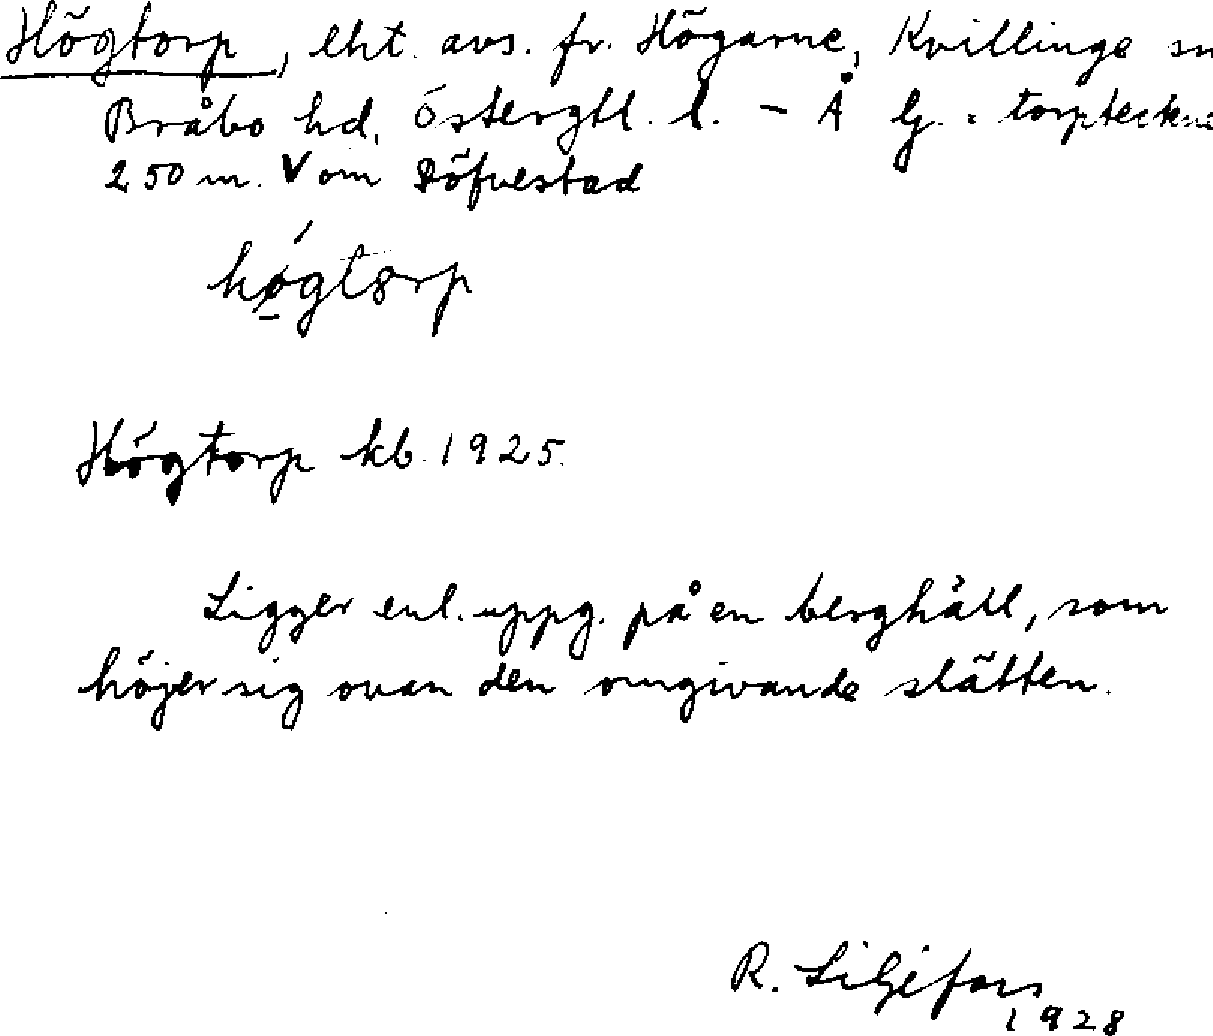 Högtorp, lht. avs. fr. Högarne, Kvillinge sn
Bråbo hd, Östergtl. l. – Å lj. = torptecknet
250 m. V om Döfvestad
högtorp
Högtorp kb. 1925.
Ligger enl. uppg. på en berghäll, som
höjer sig ovan den omgivande slätten.
R. Liljefors
1928